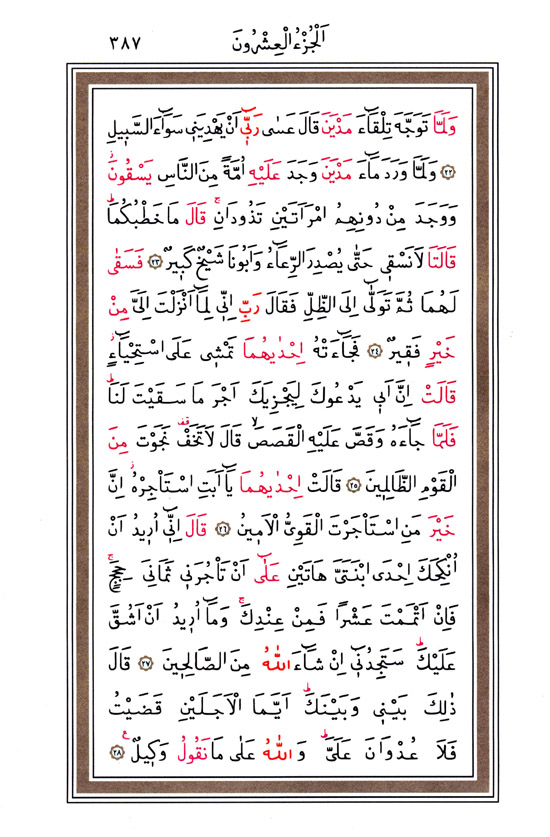 اَلْجُزْءُ الْعِشْرُونَ ٣٨٧
وَلَمَّا تَوَجَّهَ تِلْقَٓاءَ مَدْيَنَ قَالَ عَسٰى رَبّ۪ٓي اَنْ يَهْدِيَن۪ي سَوَٓاءَ السَّب۪يلِ
﴿٢٢﴾ وَلَمَّا وَرَدَ مَٓاءَ مَدْيَنَ وَجَدَ عَلَيْهِ اُمَّةً مِنَ النَّاسِ يَسْقُونَۘ
وَوَجَدَ مِنْ دُونِهِمُ امْرَاَتَيْنِ تَذُودَانِۚ قَالَ مَا خَطْبُكُمَاۜ
قَالَتَا لَا نَسْق۪ي حَتّٰى يُصْدِرَ الرِّعَٓاءُ وَاَبُونَا شَيْخٌ كَب۪يرٌ ﴿٢٣﴾ فَسَقٰى
لَهُمَا ثُمَّ تَوَلّٰٓى اِلَى الظِّلِّ فَقَالَ رَبِّ اِنّ۪ي لِمَٓا اَنْزَلْتَ اِلَيَّ مِنْ
خَيْرٍ فَق۪يرٌ ﴿٢٤﴾ فَجَٓاءَتْهُ اِحْدٰيهُمَا تَمْش۪ي عَلَى اسْتِحْيَٓاءٍۘ
قَالَتْ اِنَّ اَب۪ي يَدْعُوكَ لِيَجْزِيَكَ اَجْرَ مَا سَقَيْتَ لَنَاۜ
فَلَمَّا جَٓاءَهُ وَقَصَّ عَلَيْهِ الْقَصَصَۙ قَالَ لَا تَخَفْ۠ نَجَوْتَ مِنَ
الْقَوْمِ الظَّالِم۪ينَ ﴿٢٥﴾ قَالَتْ اِحْدٰيهُمَا يَٓا اَبَتِ اسْتَاْجِرْهُۘ اِنَّ
خَيْرَ مَنِ اسْتَاْجَرْتَ الْقَوِيُّ الْاَم۪ينُ ﴿٢٦﴾ قَالَ اِنّ۪ٓي اُر۪يدُ اَنْ
اُنْكِحَكَ اِحْدَى ابْنَتَيَّ هَاتَيْنِ عَلٰٓى اَنْ تَاْجُرَن۪ي ثَمَانِيَ حِجَجٍۚ
فَاِنْ اَتْمَمْتَ عَشْرًا فَمِنْ عِنْدِكَۚ وَمَٓا اُر۪يدُ اَنْ اَشُقَّ
عَلَيْكَۜ سَتَجِدُن۪ٓي اِنْ شَٓاءَ اللّٰهُ مِنَ الصَّالِح۪ينَ ﴿٢٧﴾ قَالَ
ذٰلِكَ بَيْن۪ي وَبَيْنَكَۜ اَيَّمَا الْاَجَلَيْنِ قَضَيْتُ
فَلَا عُدْوَانَ عَلَيَّۜ وَاللّٰهُ عَلٰى مَا نَقُولُ وَك۪يلٌ۟ ﴿٢٨﴾